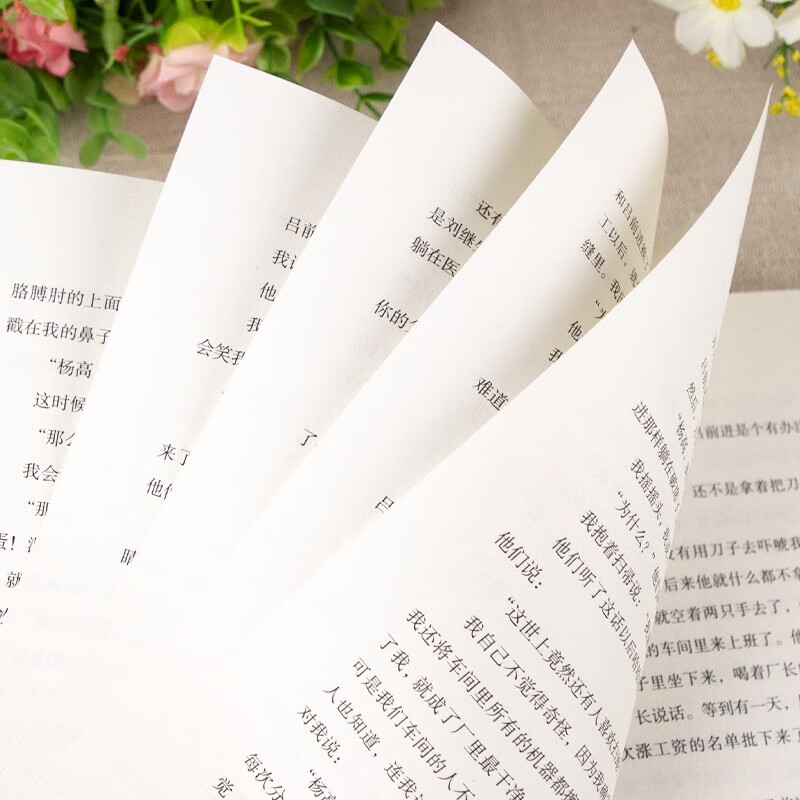 胳膊肘的上面
戳在我的鼻子
“杨高
这时候
“那么
我会
“那
蛋！
就
吕前
我
他
我
会笑我
来了
他
还有
是刘继生
躺在医
你的
了
和吕前进换
工以后，
缝里。我
他
我
难道
吕
然后，
“杨高，
进那样躺在破
我摇摇头，我
“为什么？”
我抱着扫帚说：
他们听了这话以后
他们说：
“这世上竟然还有人喜欢扫
我自己不觉得奇怪，因为我
我还将车间里所有的机器都擦
了我，就成了厂里最干净
可是我们车间的人不
人也知道，连我
对我说：
“杨高
每次分
觉
吕前进是个有办法
还不是拿着把刀
没有用刀子去吓唬我
后来他就什么都不拿
就空着两只手去了，
的车间里来上班了。他
子里坐下来，喝着厂长
长说话。等到有一天，
次涨工资的名单批下来了